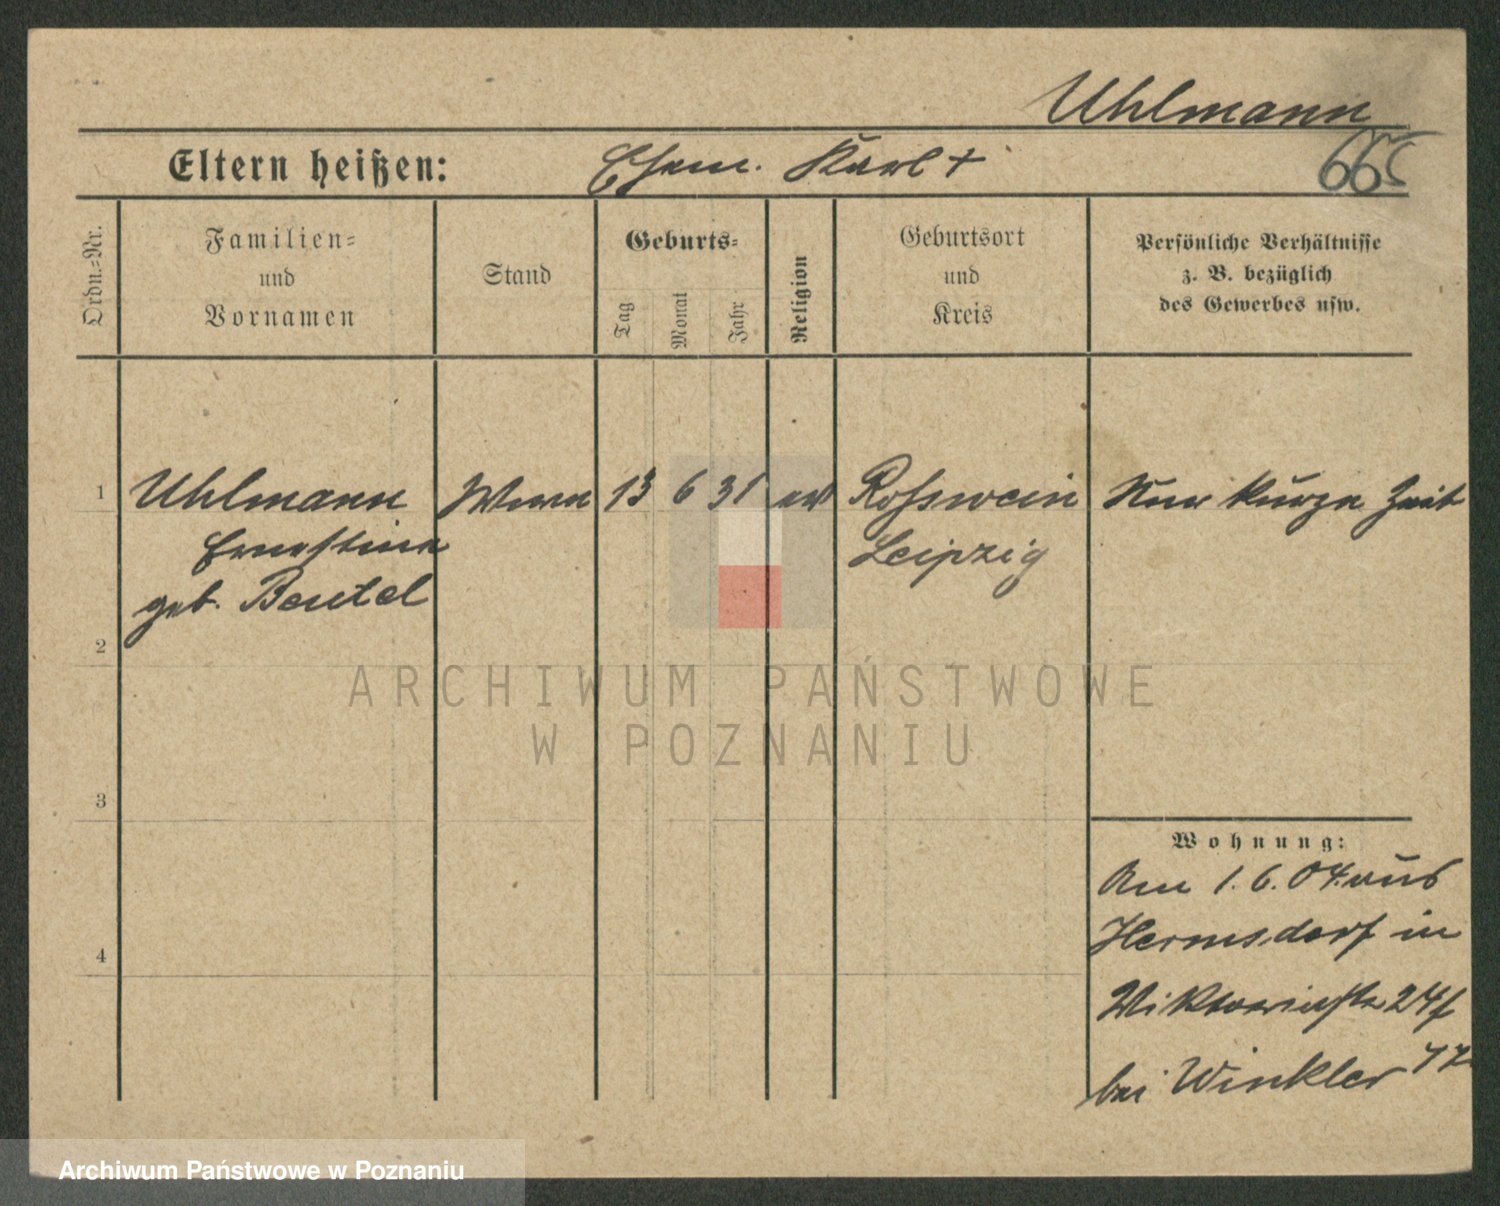 Uhlmann
Eltern heißen: Ehem. Karl +
665
Ordn.-Nr.
Familien-
und
Vornamen
Stand
Geburts-
Tag
Monat
Jahr
Religion
Geburtsort
und
Kreis
Persönliche Verhältnisse
z. B. bezüglich
des Gewerbes usw.
1 Uhlmann Wwe 13 6 31 ev Roßwein Nur kurze Zeit
Ernestine Leipzig
geb. Beutel
2
3
4
Wohnung:
Am 1.6.04. aus
Hermsdorf in
Viktoriastr 24
bei Winkler
ARCHIWUM PAŃSTWOWE
W POZNANIU
Archiwum Państwowe w Poznaniu